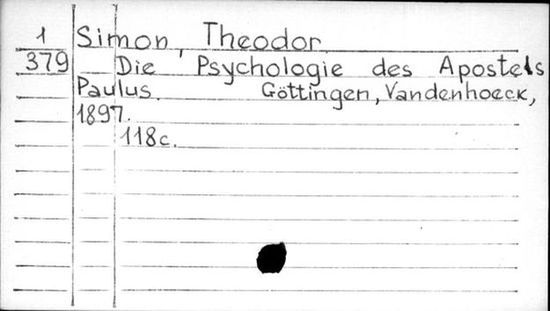 1 Simon, Theodor
379 Die Psychologie des Apostels
Paulus. Göttingen, Vandenhoeck,
1897.
118c.